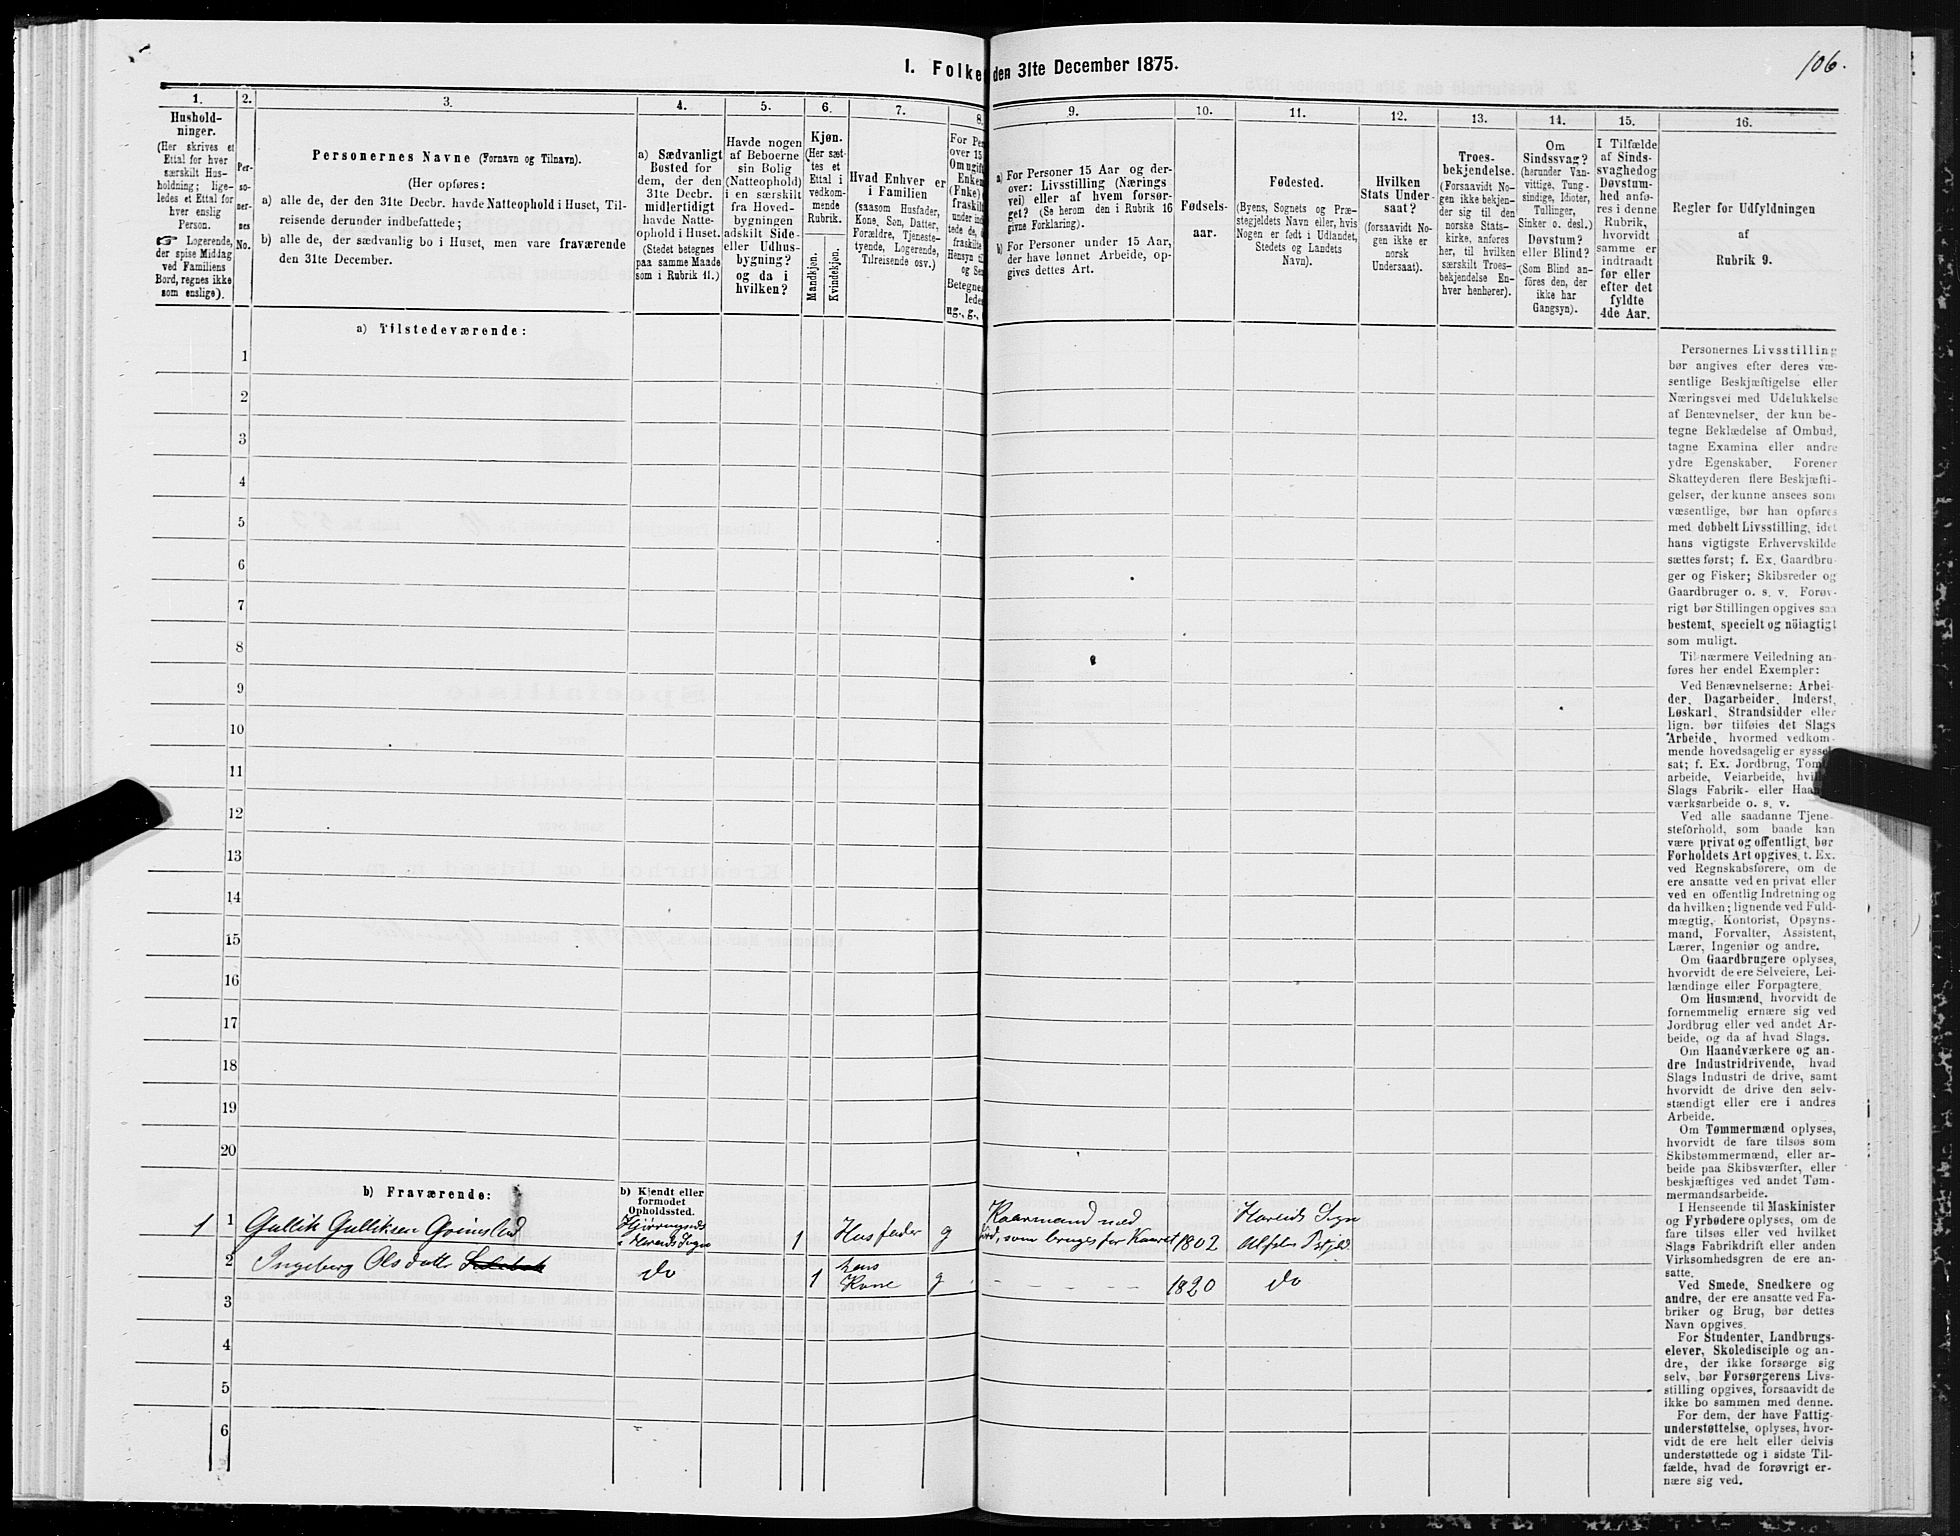 I. Folke
den 31te December 1875.
106.
1.
Hushold-
ninger.
(Her skrives et
Ettal for hver
særskilt Hus-
holdning; lige-
ledes et Ettal for
hver enslig
Person.
☞ Logerende,
der spise Middag
ved Familiens
Bord, regnes ikke
som enslige).
2.
Per-
so-
ner-
ses
No.
3.
Personernes Navne (Fornavn og Tilnavn).
(Her opføres:
a) alle de, der den 31te Decbr. havde Natteophold i Huset, Til-
reisende derunder indbefattede;
b) alle de, der sædvanlig bo i Huset, men vare fraværende
den 31te December.
4.
a) Sædvanligt
Bosted for
dem, der den
31te Decbr.
midlertidigt
havde Natte-
ophold i Huset.
(Stedet betegnes
paa samme Maade
som i Rubrik 11.)
5.
Havde nogen
af Beboerne
sin Bolig
(Natteophold)
i en særskilt
fra Hoved-
bygningen
adskilt Side-
eller Udhus-
bygning?
og da i
hvilken?
6.
Kjøn.
(Her sæt-
tes et
Ettal i
vedkom-
mende
Rubrik.
Mandkjøn.
Kvindekjøn.
7.
Hvad Enhver er
i Familien
(saasom Husfader,
Kone, Søn, Datter,
Forældre, Tjeneste-
tyende, Logerende,
Tilreisende osv.)
8.
For Per
over 15
Om ugift
Enken
(Fnke)
fraskilt
under ind
tede de,
fraskilte
Hensyn til
og Se
Betegnes
ledes
ug., g.,
9.
a) For Personer 15 Aar og der-
over: Livsstilling (Nærings
vei) eller af hvem forsør-
get? (Se herom den i Rubrik 16
givne Forklaring).
b) For Personer under 15 Aar,
der have lønnet Arbeide, op-
gives dettes Art.
10.
Fødsels-
aar.
11.
Fødested.
(Byens, Sognets og Præ-
stegjeldets Navn eller, hvis
Nogen er født i Udlandet,
Stedets og Landets
Navn).
12.
Hvilken
Stats Under
saat?
(forsaavidt No-
gen ikke er
norsk
Undersaat).
13.
Troes-
bekjendelse.
(Forsaavidt No-
gen ikke bekjen-
der sig til den
norske Stats-
kirke, anføres
her, til hvilken
særskilt Troes-
bekjendelse En-
hver henhører).
14.
Om
Sindssvag?
(herunder Van-
vittige, Tung-
sindige, Idioter,
Tullinger,
Sinker o. desl.)
Døvstum?
eller Blind?
(Som Blind an-
føres den, der
ikke har
Gangsyn).
15.
I Tilfælde
af Sinds-
svaghed og
Døvstum-
hed anfø-
res i denne
Rubrik,
hvorvidt
samme er
indtraadt
før eller
efter det
fyldte
4de Aar.
16.
Regler for Udfyldningen
af
Rubrik 9.
a) Tilstedeværende:
1
2
3
4
5
6
7
8
9
10
11
12
13
14
15
16
17
18
19
20
b) Fraværende:
b) Kjendt eller
formodet
Opholdssted.
1 1 Gullik Gulliksen 1 Husfader g Kaarmand med som bruges for Kaaret 1802
2 Ingeberg Olsdatter do 1 hans Kone g - - - - 1820 do
3
4
5
6
Personernes Livsstilling
bør angives efter deres væ-
sentlige Beskjæftigelse eller
Næringsvei med Udelukkelse
af Benævnelser, der kun be-
tegne Beklædelse af Ombud,
tagne Examina eller andre
ydre Egenskaber. Forener
Skatteyderen flere Beskjæfti-
gelser, der kunne ansees som
væsentlige, bør han opføres
med dobbelt Livsstilling, idet
hans vigtigste Erhvervskilde
sættes først; f. Ex. Gaardbru-
ger og Fisker; Skibsreder og
Gaardbruger o. s. v. Forøv-
rigt bør Stillingen opgives saa
bestemt, specielt og nöiagtigt
som muligt.
Til nærmere Veiledning an-
føres her endel Exempler:
Ved Benævnelserne: Arbei-
der, Dagarbeider, Inderst,
Løskarl, Strandsidder eller
lign. bør tilføies det Slags
Arbeide, hvormed vedkom-
mende hovedsagelig er syssel-
sat; f. Ex. Jordbrug, Tom
arbeide, Veiarbeide, hvil
Slags Fabrik- eller Haan
værksarbeide o. s. v.
Ved alle saadanne Tjene-
steforhold, som baade kan
være privat og offentligt, bør
Forholdets Art opgives, t. Ex.
ved Regnskabsførere, om de
ere ansatte ved en privat eller
ved en offentlig Indretning og
da hvilken; lignende ved Fuld-
mægtig, Kontorist, Opsyns-
mand, Forvalter, Assistent,
Lærer, Ingeniør og andre.
Om Gaardbrugere oplyses,
hvorvidt de ere Selveiere, Lei-
lændinge eller Forpagtere.
Om Husmænd, hvorvidt de
fornemmelig ernære sig ved
Jordbrug eller ved andet Ar-
beide, og da af hvad Slags.
Om Haandværkere og an-
dre Industridrivende, hvad
Slags Industri de drive, samt
hvorvidt de drive den selv-
stændigt eller ere i andres
Arbeide.
Om Tømmermænd oplyses,
hvorvidt de fare tilsøs som
Skibstømmermænd, eller ar-
beide paa Skibsværfter, eller
beskjæftiges ved andet Tøm-
mermandsarbeide.
I Henseende til Maskinister
og Fyrbødere oplyses, om de
fare tilsøs eller ved hvilket
Slags Fabrikdrift eller anden
Virksomhedsgren de ere an-
satte.
Ved Smede, Snedkere og
andre, der ere ansatte ved Fa-
briker og Brug, bør dettes
Navn opgives.
For Studenter, Landbrugs-
elever, Skoledisciple og an-
dre, der ikke forsørge sig
selv, bør Forsørgerens Livs-
stilling opgives, forsaavidt de
ikke bo sammen med denne.
For dem, der have Fattig-
understøttelse, oplyses, hvor-
vidt de ere helt eller delvis
understøttede og i sidste Til-
fælde, hvad de forøvrigt er-
nære sig ved.